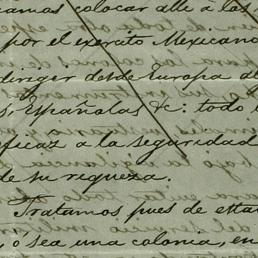 camos colocar alli a las
por el exército Mexicano
dirigir desde Europa al
s, Españolas &c: todo l
eficaz a la seguridad
de su riqueza.
Tratamos pues de esta
, ó sea una colonia, en